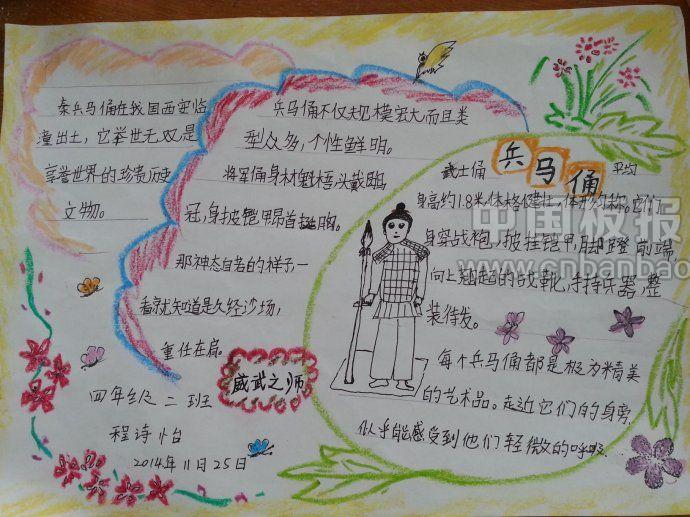 秦兵马俑在我国西安临
潼出土，它举世无双是
享誉世界的珍贵历史
文物。
兵马俑不仅规模宏大，而且类
型众多，个性鲜明。
将军俑身材魁梧，头戴鹖
冠，身披铠甲昂首挺胸。
那神态自若的样子一
看就知道是久经沙场，
重任在肩。
威武之师
四年级二班
程诗怡
2014年11月25日
兵马俑
武士俑 平均
身高约1.8米，体格健壮，体形匀称。它们
身穿战袍，披挂铠甲，脚蹬前端
向上翘起的战靴，手持兵器，整
装待发。
每个兵马俑都是极为精美
的艺术品。走近它们的身旁，
似乎能感受到他们轻微的呼吸
中国板报
www.cnbanbao